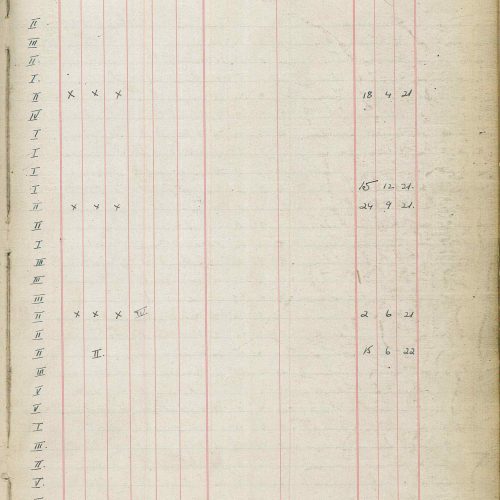 II
III
II.
I.
II x x x 18 4 21
IV
I
I
I
I 15 12 21.
II x x x 24 9 21.
II
I
III
III
III
II x x x IV 2 6 21
II
II II. 15 6 22
III
V
V
I
III.
II.
V.